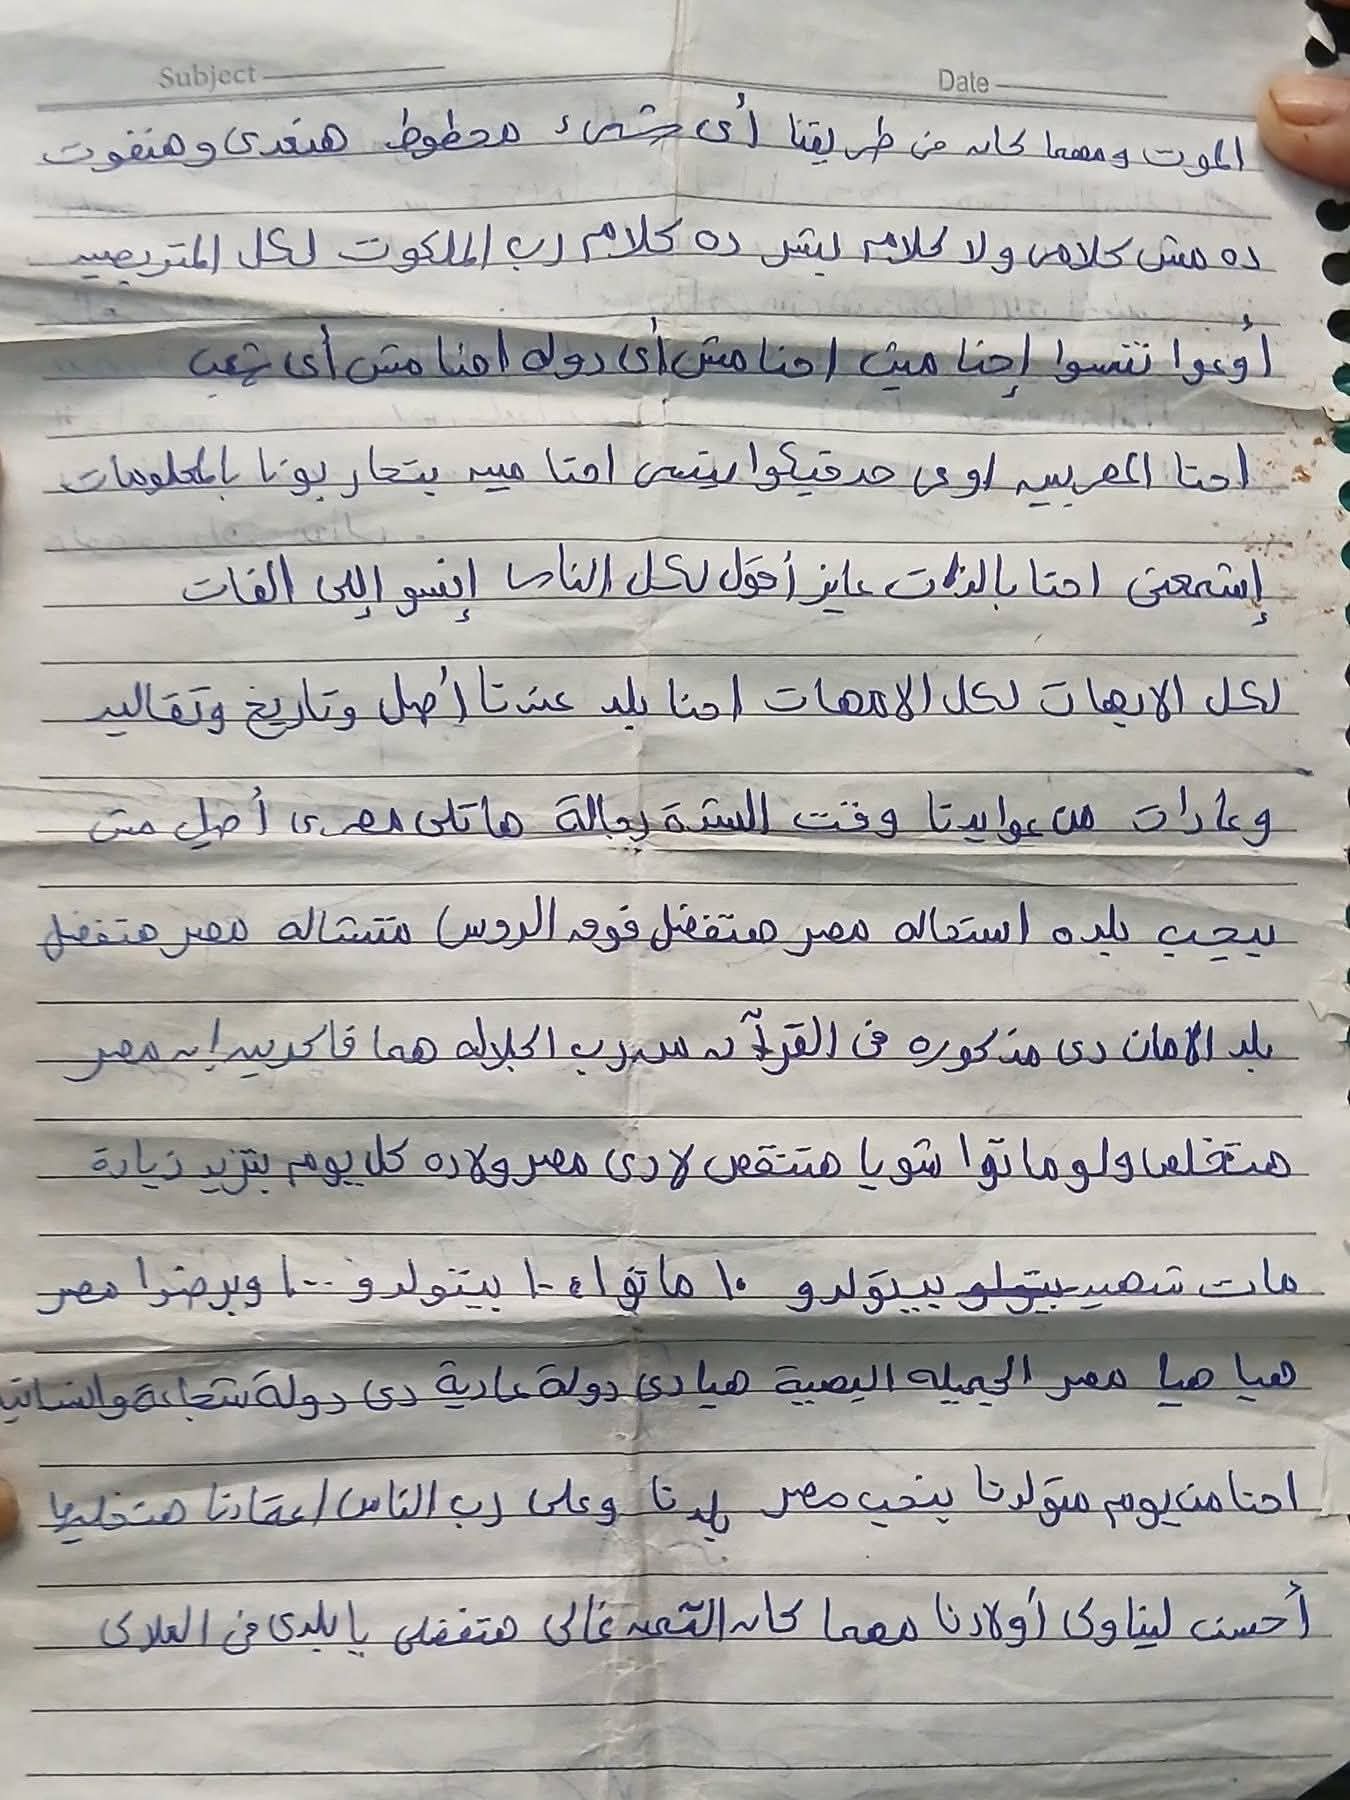 Subject
Date
الموت ومهما كان فى طريقنا أى شىء محطوط هنعدى وهنفوت
ده مش كلامى ولا كلام بشر ده كلام رب الملكوت لكل المتربصين
أوعوا تنسوا إحنا مين احنا مش أى دوله احنا مش أى شعب
احنا المصريين اوعى حد فيكوا ينسى احنا مين بتحاربونا بالمعلومات
إشمعنى احنا بالذات عايز أقول لكل الناس إنسو اللى الفات
لكل الابهات لكل الامهات احنا بلد عندنا أصل وتاريخ وتقاليد
وعادات من عوايدنا وقت الشدة رجالة هاتلى مصرى أصلى مش
بيحب بلده استحاله مصر هتفضل فوق الروس متنشاله مصر هتفضل
بلد الامان دى مذكوره فى القرآن من رب الجلاله هما فاكرين ان مصر
هتخلص ولو ماتوا شويا هتنقص لا دى مصر ولاده كل يوم بتزيد زيادة
مات شهيد بيتولدو ١٠ ماتوا ١٠ بيتولدو ١٠٠ وبرضوا مصر
هيا هيا مصر الجميله البهية هيا دى دولة عادية دى دولة شجاعة وانسانية
احنا من يوم متولدنا بنحب مصر بلدنا وعلى رب الناس اعتمادنا هتخليها
أحسن لينا ولى أولادنا مهما كان التمن غالى هتفضلى يا بلدى فى العلالى